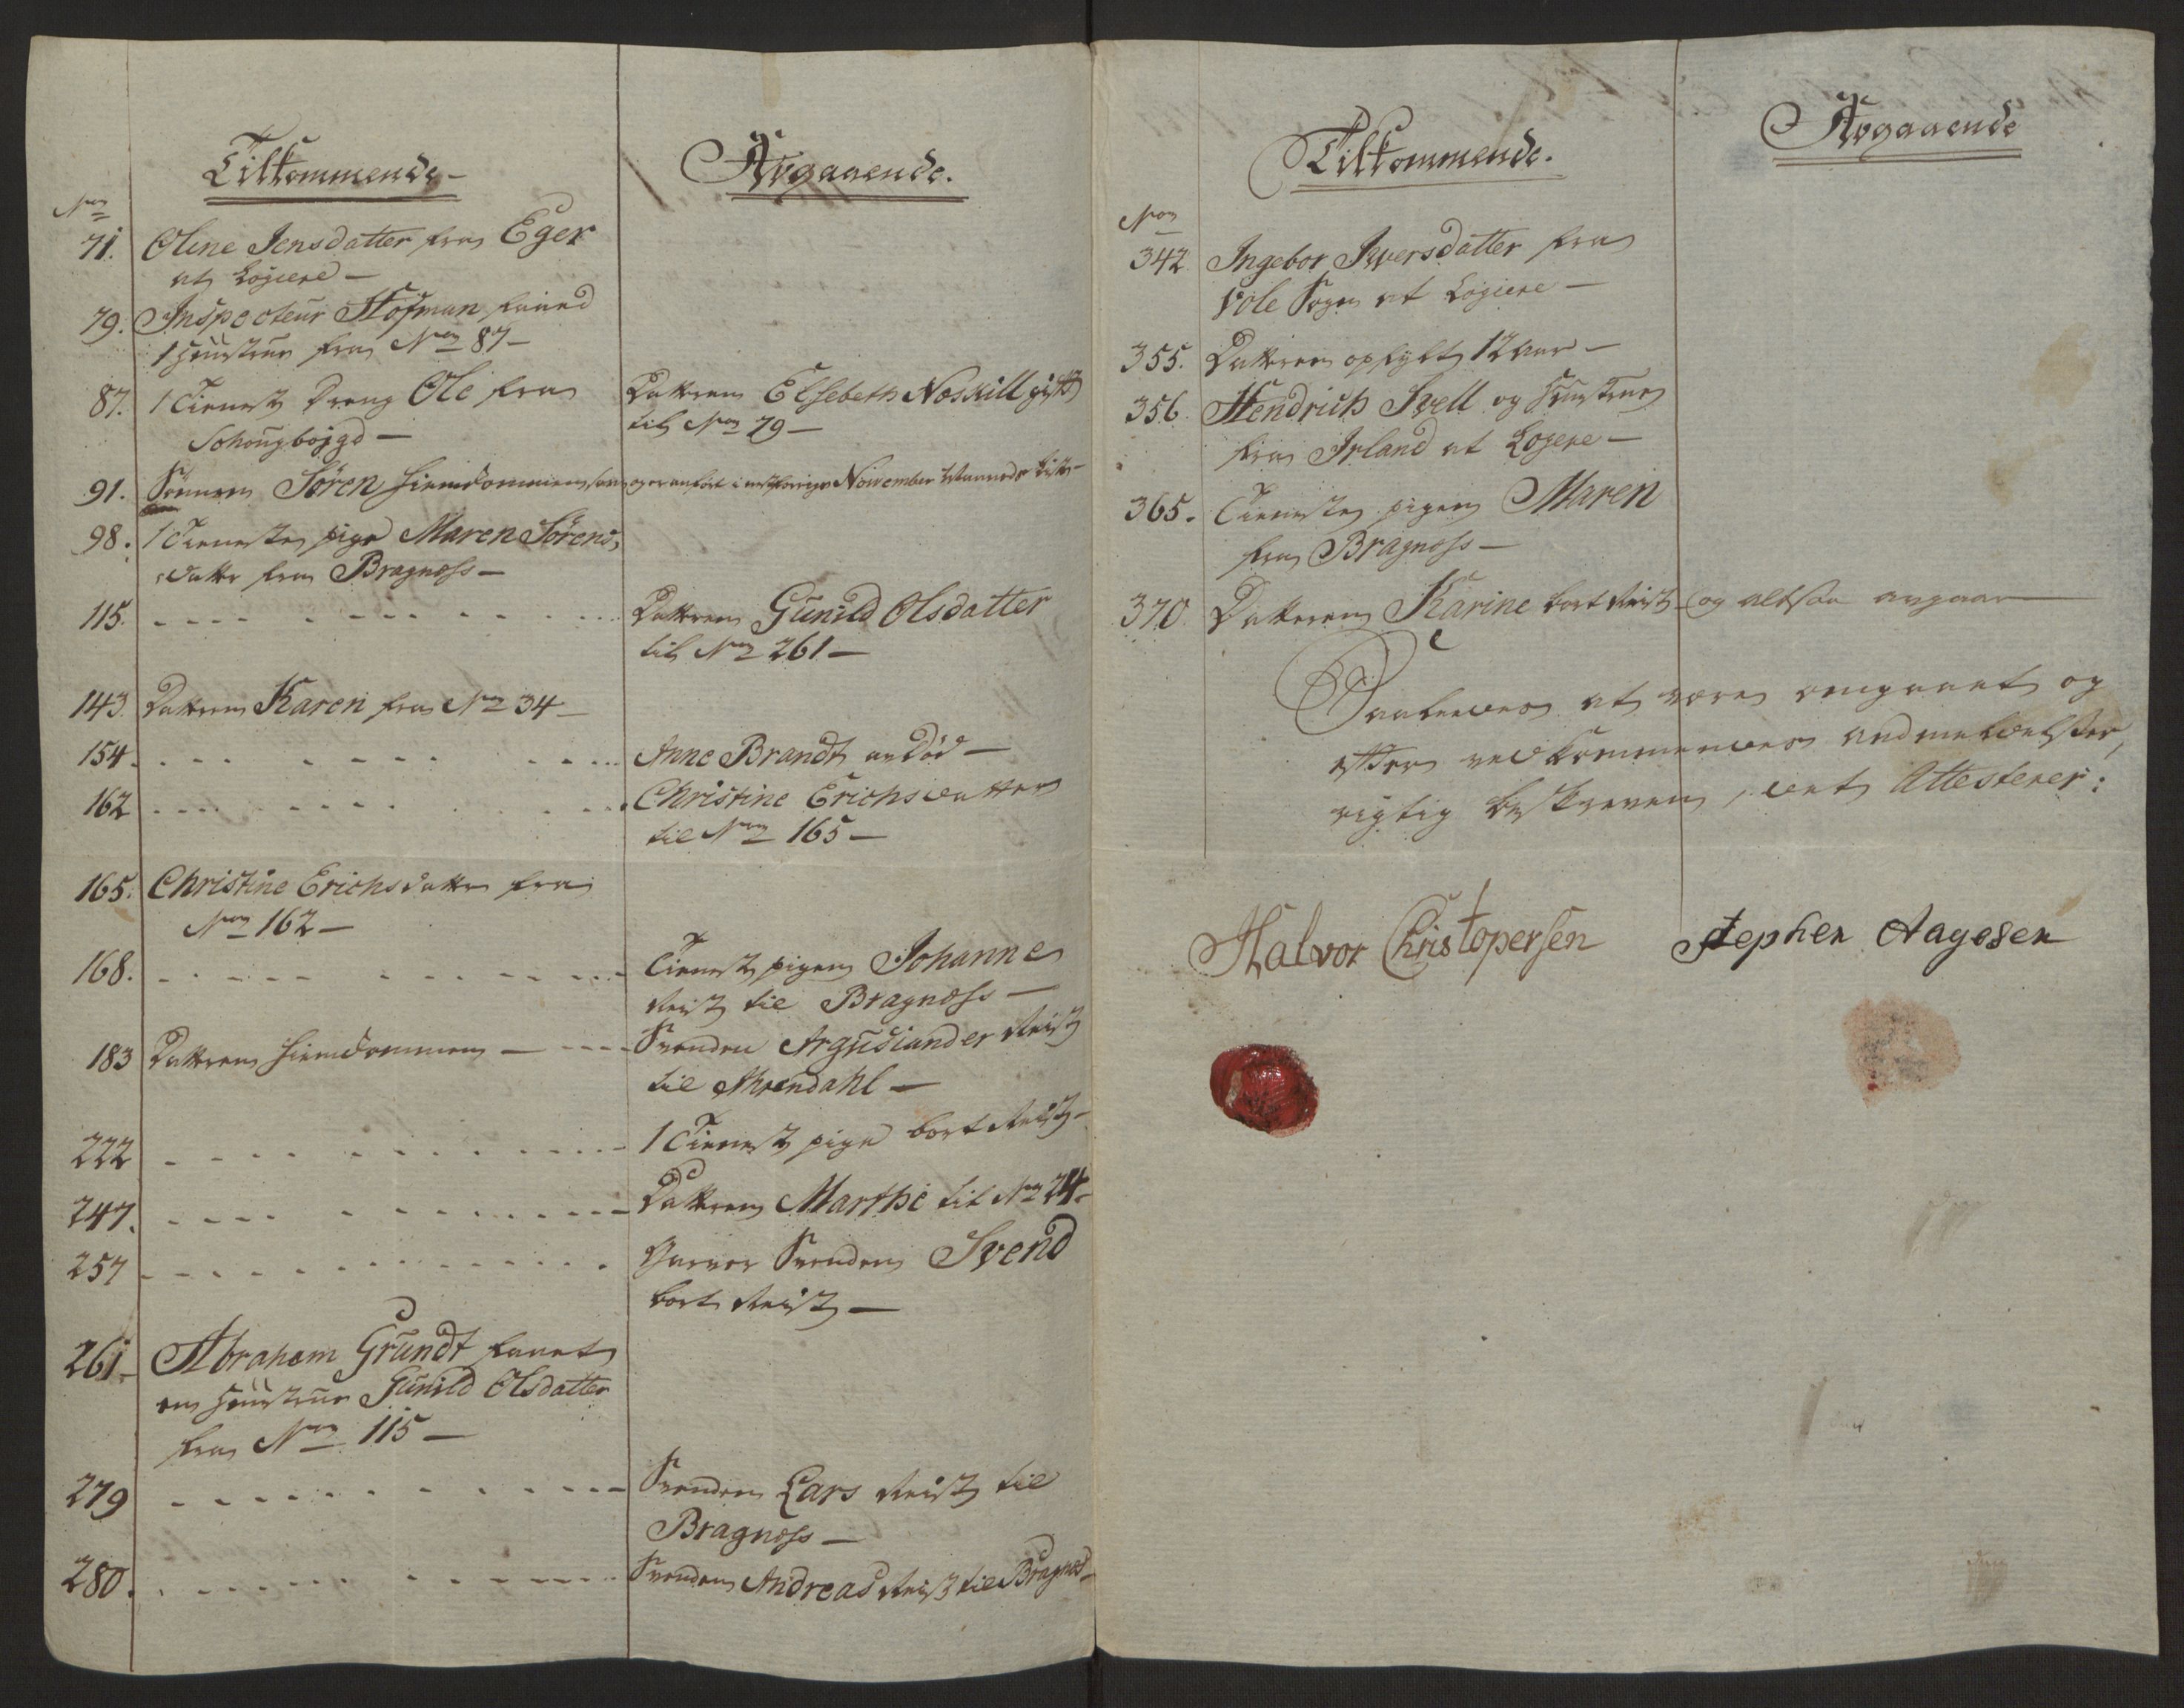 Tilkommende -
Avgaaende.
No
71. Oline Jensdatter fra Eger
at Logiere -
79. Inspecteur Hofman faaed
1 Huustrue fra No 87 -
87. 1 Tienest Dreng Ole fra
Schougbøygd -
Datteren Elsebeth Noskill gift
til No 79 -
91. Sønnen Søren hiemkommen, som og er anført i nestforrige November Maaneds Liste -
98. 1 Tieneste pige Maren Sørens,
datter fra Bragness -
115. Datteren Gunild Olsdatter
til No 261 -
143. Datteren Karen fra No 34 -
154. Anne Brandt er Død -
162 Christine Erichsdatter
til No 165 -
165. Christine Erichsdatter fra
No 162 -
168. Tienest pigen Johanne
Reist til Bragness -
183 Datteren hiemkommen - Svenden Argusiander Reist
til Ahrendahl -
222 1 Tienest pige bort Reist -
247. Datteren Marthe til No 24 -
257 Garver Svenden Svend
bort Reist -
261 - Abraham Grundt faaet
en Huustrue Gunild Olsdatter
fra No 115 -
279 Svenden Lars Reist til
Bragness -
280. Svenden Andreas Reist til Bragnes -
Tilkommende.
Avgaaende
No
342 Ingebor Iversdatter fra
Vole Sogn at Logiere -
355. Datteren opfylt 12 aar -
356. Hendrich Svell og Huustrue
fra Irland at Logere -
365. Tieneste pigen Maren
fra Bragness -
370. Datteren Karine bort Reist - og altsaa avgaar
Saaledes at være omgaaet og
efter vedkommendes Andmeldelser,
rigtig beskreven, det Attesterer:
Halvor Christopersen
Stephen Aagesen